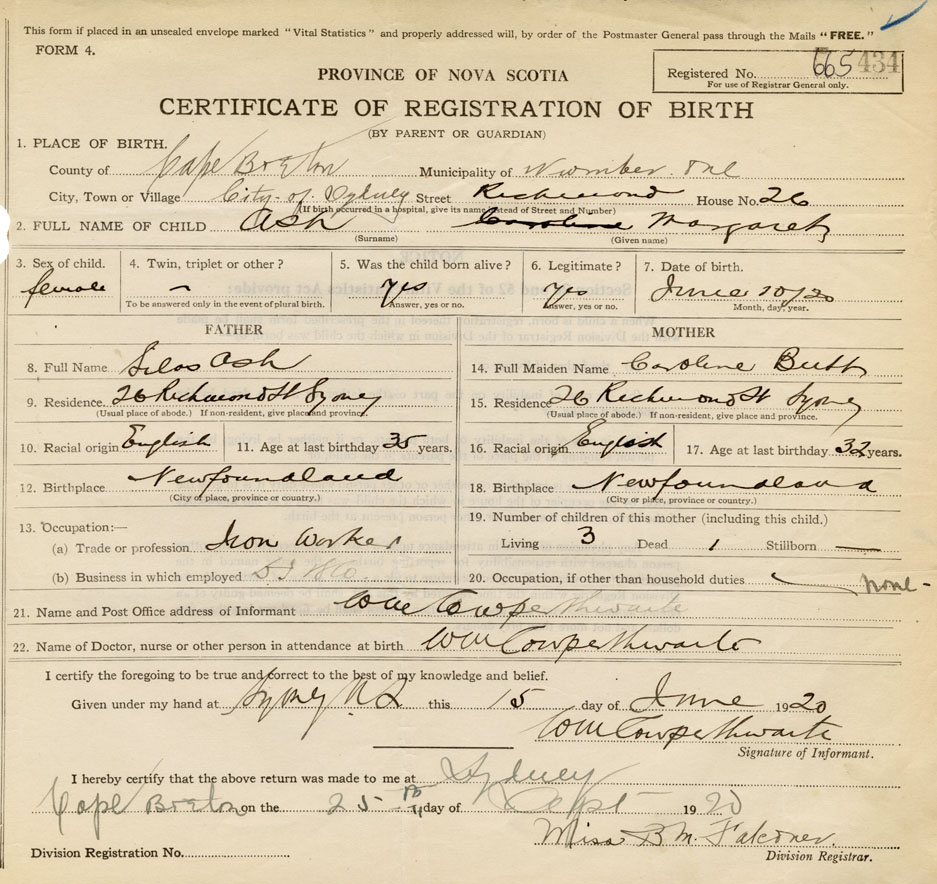 This form if placed in an unsealed envelope marked "Vital Statistics" and properly addressed will, by order of the Postmaster General pass through the Mails "FREE."
FORM 4.
PROVINCE OF NOVA SCOTIA
Registered No. 665 434
For use of Registrar General only.
CERTIFICATE OF REGISTRATION OF BIRTH
(BY PARENT OR GUARDIAN)
1. PLACE OF BIRTH.
County of Cape Breton Municipality of Number One
City, Town or Village City of Sydney Street Richmond House No. 26
(If birth occurred in a hospital, give its name instead of Street and Number)
2. FULL NAME OF CHILD Ash Caroline Margaret
(Surname) (Given name)
3. Sex of child. 4. Twin, triplet or other? 5. Was the child born alive? 6. Legitimate? 7. Date of birth.
female – yes yes June 10/20
To be answered only in the event of plural birth. Answer, yes or no. Answer, yes or no. Month, day, year.
FATHER MOTHER
8. Full Name Silas Ash 14. Full Maiden Name Caroline Butt
9. Residence 26 Richmond St Sydney 15. Residence 26 Richmond St Sydney
(Usual place of abode.) If non-resident, give place and province. (Usual place of abode.) If non-resident, give place and province.
10. Racial origin English 11. Age at last birthday 35 years. 16. Racial origin English 17. Age at last birthday 32 years.
12. Birthplace Newfoundland 18. Birthplace Newfoundland
(City or place, province or country.) (City or place, province or country.)
13. Occupation:— 19. Number of children of this mother (including this child.)
(a) Trade or profession Iron Worker Living 3 Dead 1 Stillborn —
(b) Business in which employed 20. Occupation, if other than household duties none -
21. Name and Post Office address of Informant Wm Cowperthwaite
22. Name of Doctor, nurse or other person in attendance at birth Wm Cowperthwaite
I certify the foregoing to be true and correct to the best of my knowledge and belief.
Given under my hand at Sydney N.S. this 15 day of June 1920
Wm Cowperthwaite
Signature of Informant.
I hereby certify that the above return was made to me at Sydney
Cape Breton on the 25th day of Sept 1920
Miss B. M. Falconer.
Division Registration No. Division Registrar.